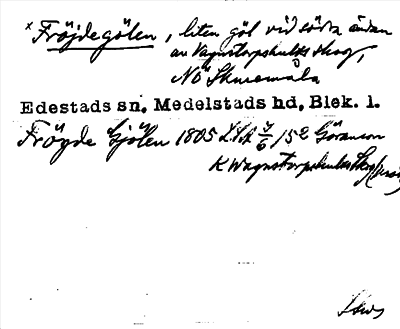 × Fröjdegölen, liten göl vid södra ändan
av Vagnstorpshults skog,
NÖ Skuremåla
Edestads sn, Medelstads hd, Blek. l.
Fröyde Gjölen 1805 7/6 152 Göransson
K Wagnstorpshults Skog